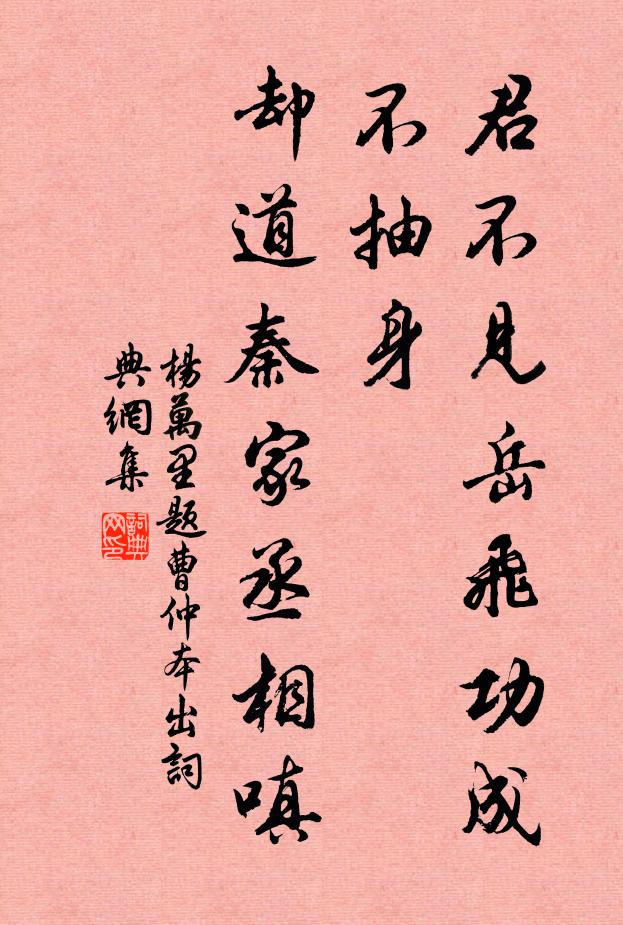 君不見岳飛功成
不抽身
却道秦家丞相嗔
楊萬里題曹仲本出詞
典網集
詞典网印